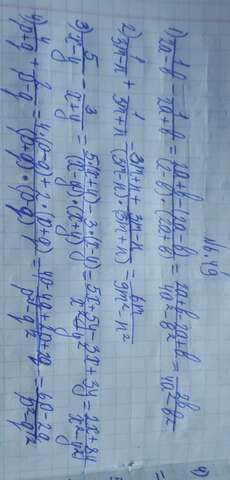 № 49
1) 1/(2a-b) - 1/(2a+b) = (2a+b-(2a-b))/((2a-b)·(2a+b)) = (2a+b-2a+b)/(4a²-b²) = 2b/(4a²-b²)
2) 1/(3m-n) + 1/(3m+n) = (3m+n+3m-n)/((3m-n)·(3m+n)) = 6m/(9m²-n²)
3) 5/(x-y) - 3/(x+y) = (5(x+y)-3·(x-y))/((x-y)·(x+y)) = (5x+5y-3x+3y)/(x²-y²) = (2x+8y)/(x²-y²)
4) 4/(p+q) + 2/(p-q) = (4·(p-q)+2·(p+q))/((p+q)·(p-q)) = (4p-4q+2p+2q)/(p²-q²) = (6p-2q)/(p²-q²)